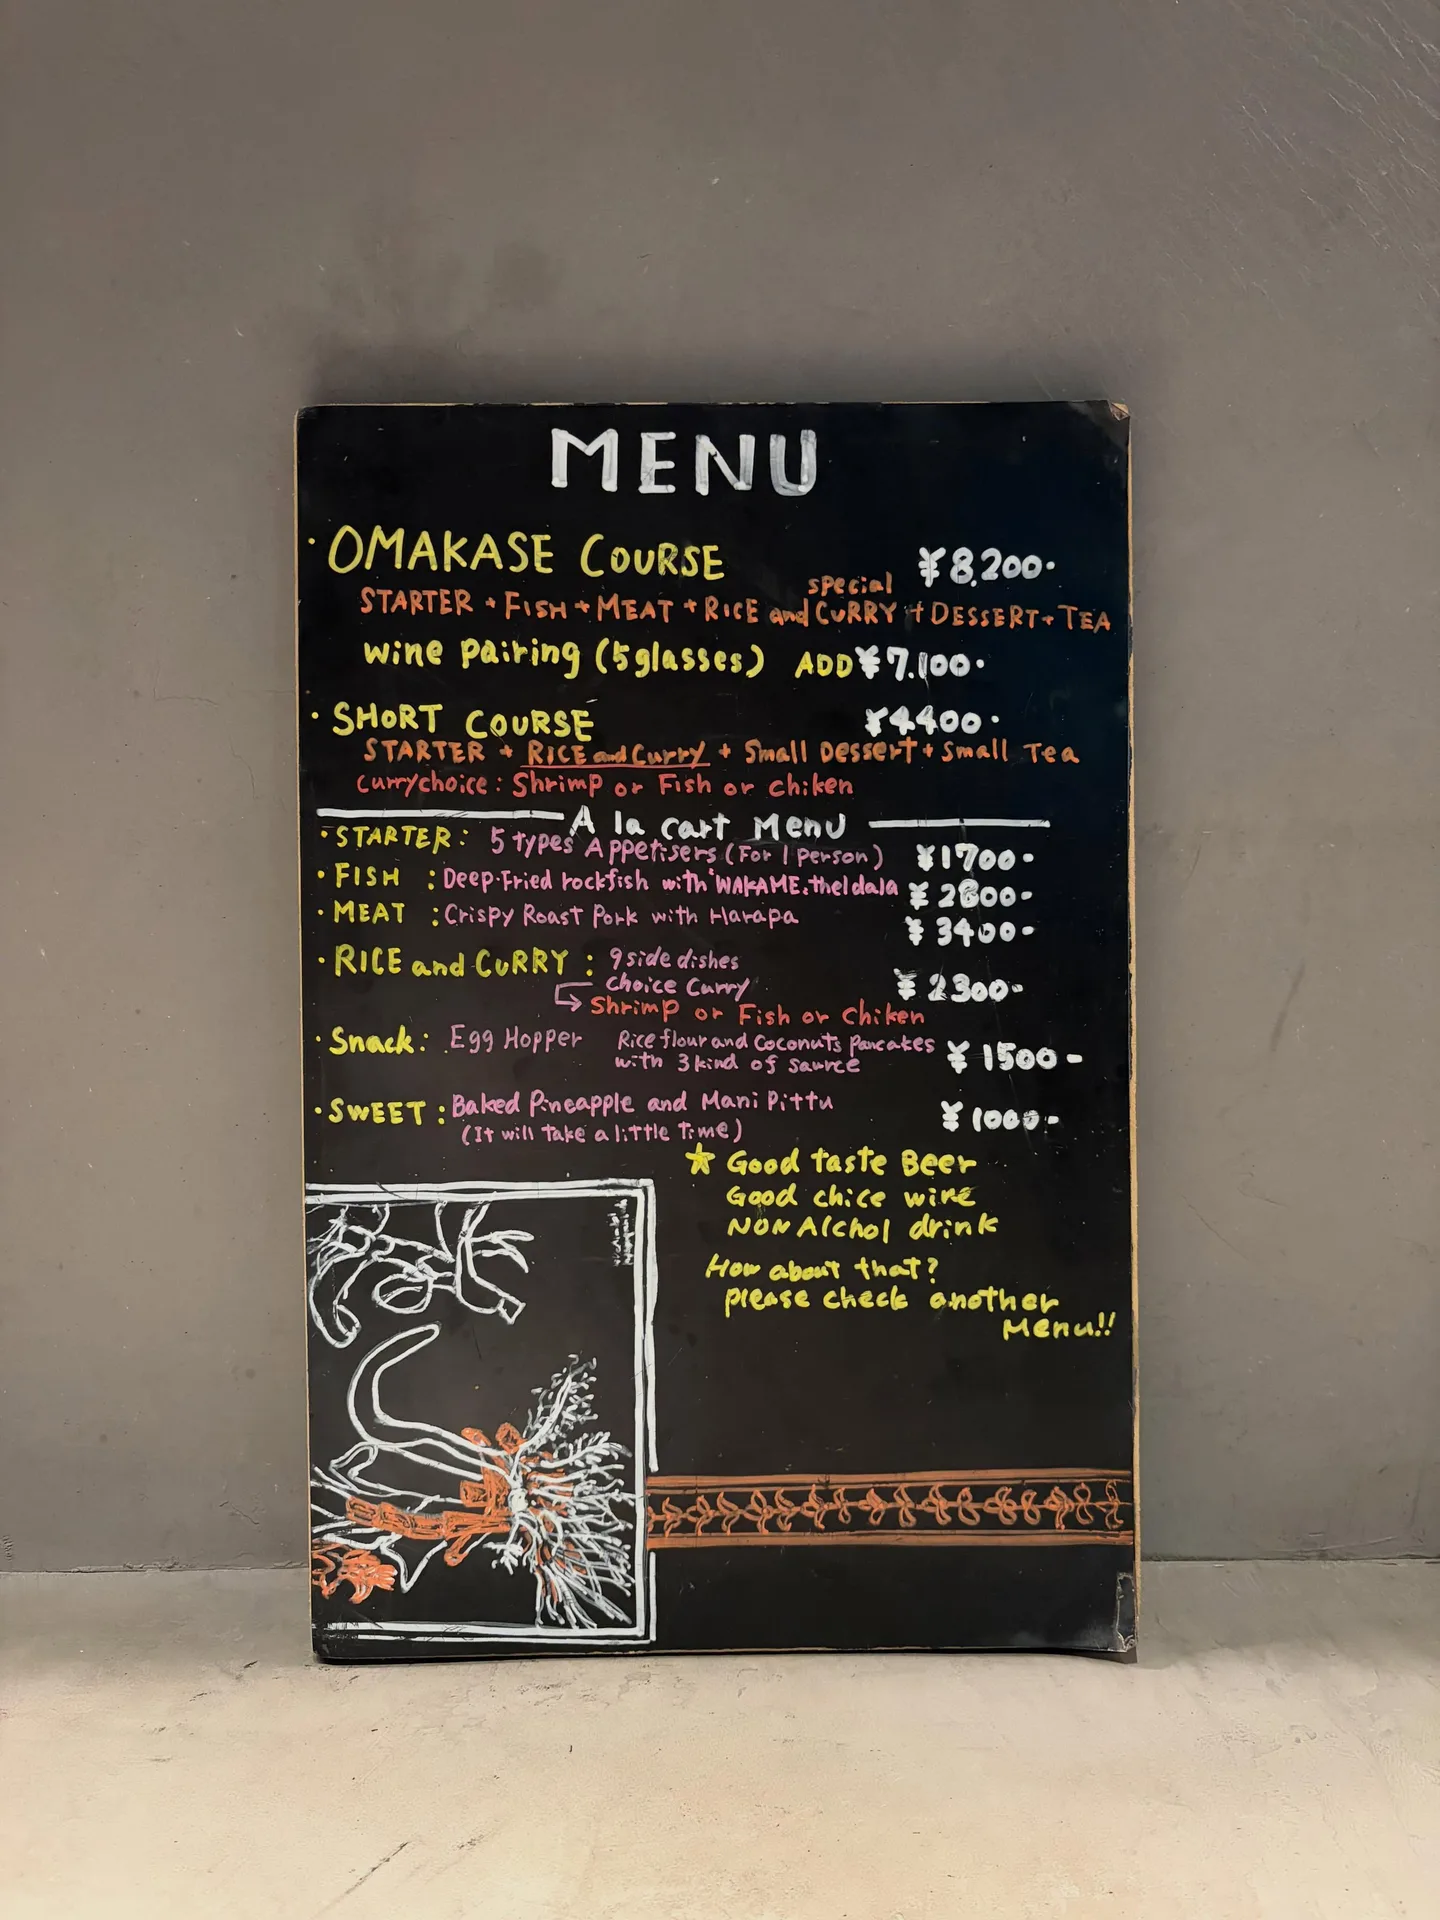 MENU
・OMAKASE COURSE ¥8.200-
STARTER + FISH + MEAT + RICE and special CURRY + DESSERT + TEA
wine pairing (5glasses) ADD ¥7.100-
・SHORT COURSE ¥4400-
STARTER + RICE and Curry + Small Dessert + Small Tea
curry choice : Shrimp or Fish or chiken
A la cart Menu
・STARTER : 5 types Appetisers (For 1 person) ¥1700-
・FISH : Deep-Fried rockfish with "WAKAME" theldala ¥2800-
・MEAT : Crispy Roast Pork with Harapa ¥3400-
・RICE and CURRY : 9 side dishes
choice Curry ¥2300-
Shrimp or Fish or Chiken
・Snack : Egg Hopper Rice flour and Coconuts pancakes
with 3 kind of saurce ¥1500-
・SWEET : Baked Pineapple and Mani Pittu ¥1000-
(It will take a little time)
★ Good taste Beer
Good chice wine
NON Alchol drink
How about that?
please check another
Menu!!